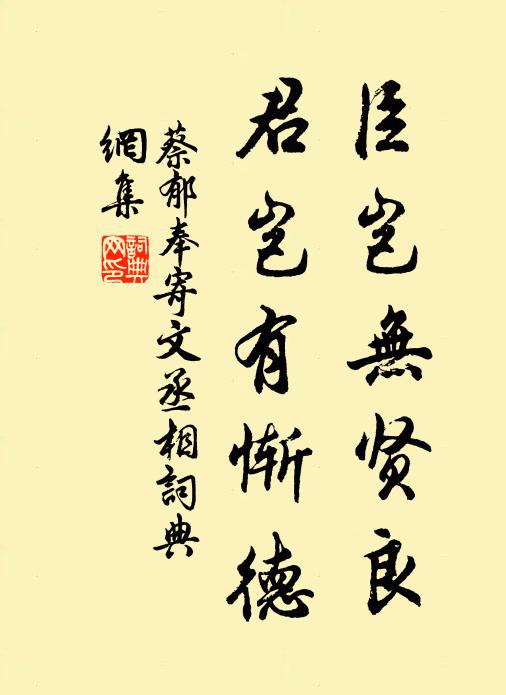 臣岂無贤良
君岂有惭德
蔡郁奉寄文丞相詞典
網集
詞典
网印